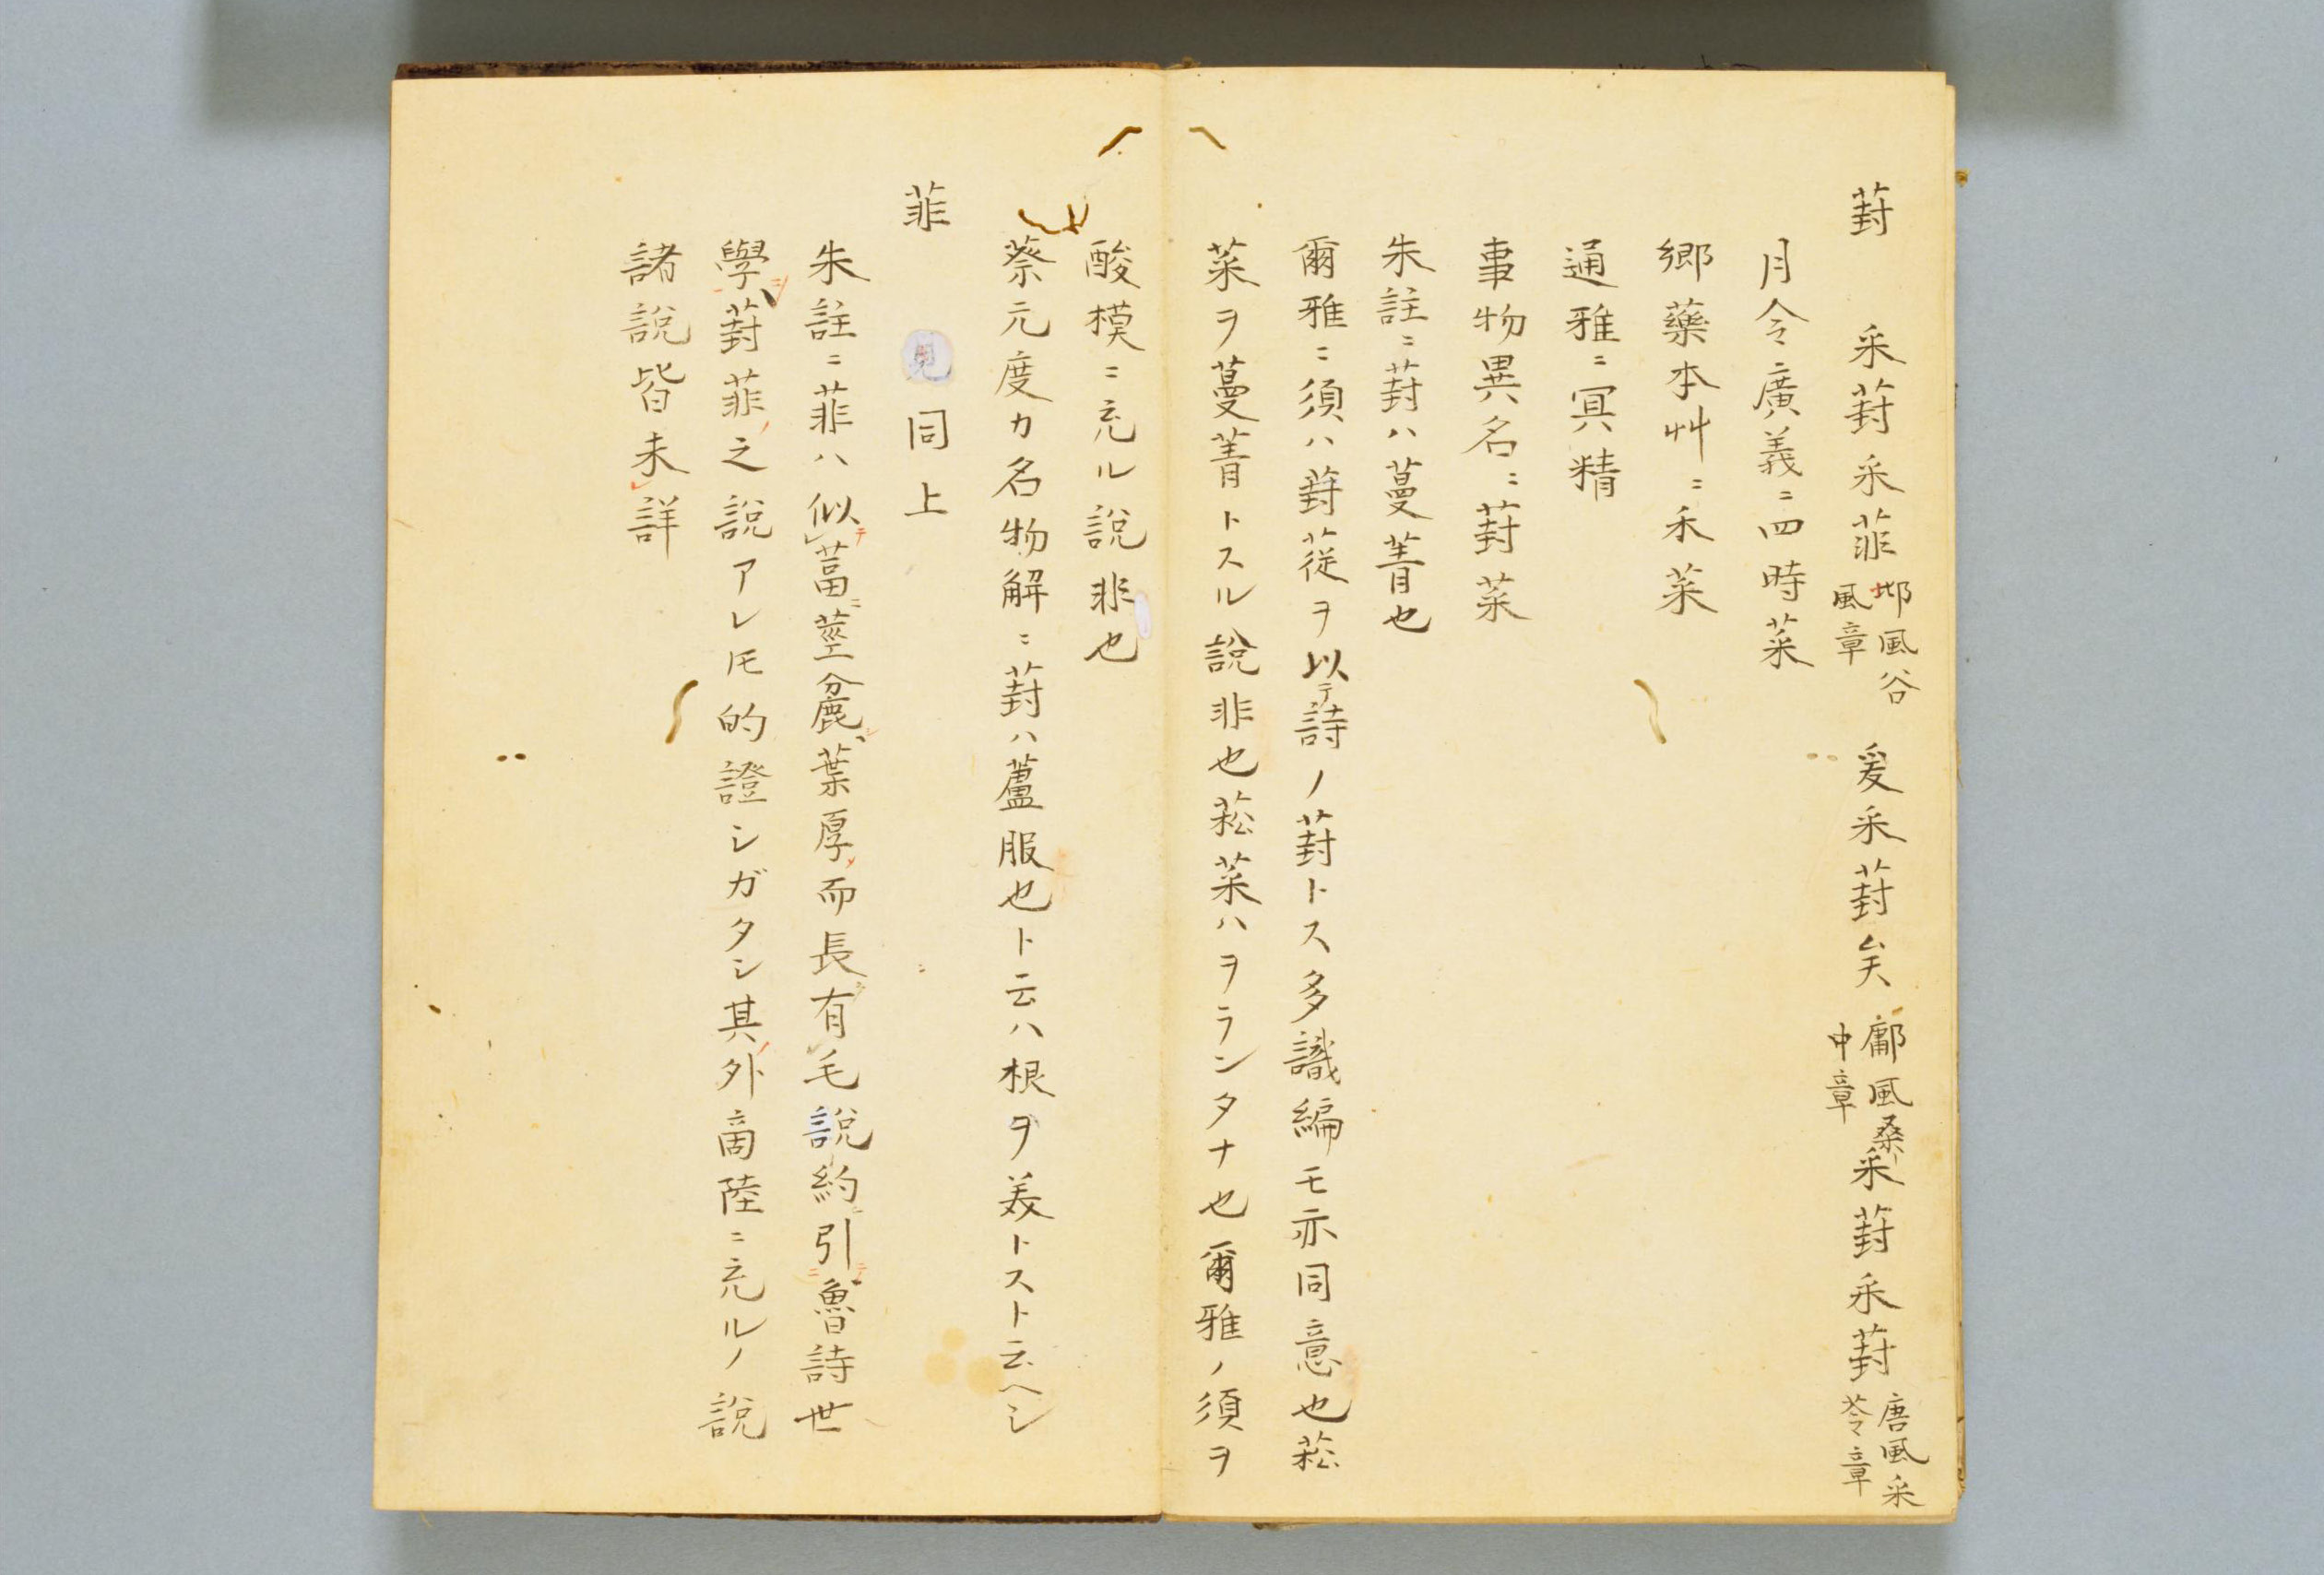 葑　采葑采菲　邶風谷風章　爰采葑矣　鄘風桑中章　采葑采葑　唐風采苓章
月令廣義ニ四時菜
郷藥本艸ニ禾菜
通雅ニ冥精
事物異名ニ葑菜
朱註ニ葑ハ蔓菁也
爾雅ニ須ハ葑蓯ヲ以テ詩ノ葑トス多識編モ亦同意也菘
菜ヲ蔓菁トスル說非也菘菜ハヲランタナ也爾雅ノ須ヲ
酸模ニ充ル說非也
蔡元度カ名物解ニ葑ハ蘆服也ト云ハ根ヲ美トスト云ヘシ
菲　見同上
朱註ニ菲ハ似テ葍ニ莖麁葉厚而長有毛說約引テ魯詩世
學ニ葑菲之說アレ𪜈的證シガタシ其外商陸ニ充ルノ說
諸說皆未詳